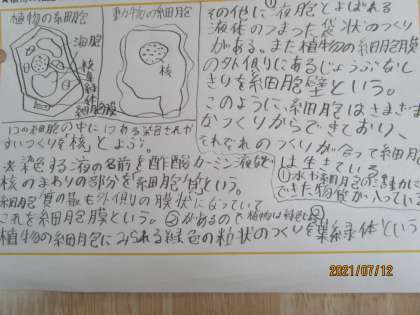 植物の細胞
動物の細胞
液胞
核
葉緑体
細胞膜
核
1つの細胞の中に1つある染色されやすいつくりを「核」とよぶ。
※染色する液の名前を酢酸カーミン液など
核のまわりの部分を細胞質という。
細胞質の最も外側の膜状になっていて
これを細胞膜という。
植物の細胞にみられる緑色の粒状のつくりを葉緑体という
その他に①液胞とよばれる
液体のつまった袋状のつくり
がある。また植物の細胞膜
の外側にあるじょうぶなし
きりを細胞壁という。
このように、細胞はさまざま
なつくりからできており、
それぞれのつくりが合って細胞
は生きている
できた物質が入っている
2021/07/12